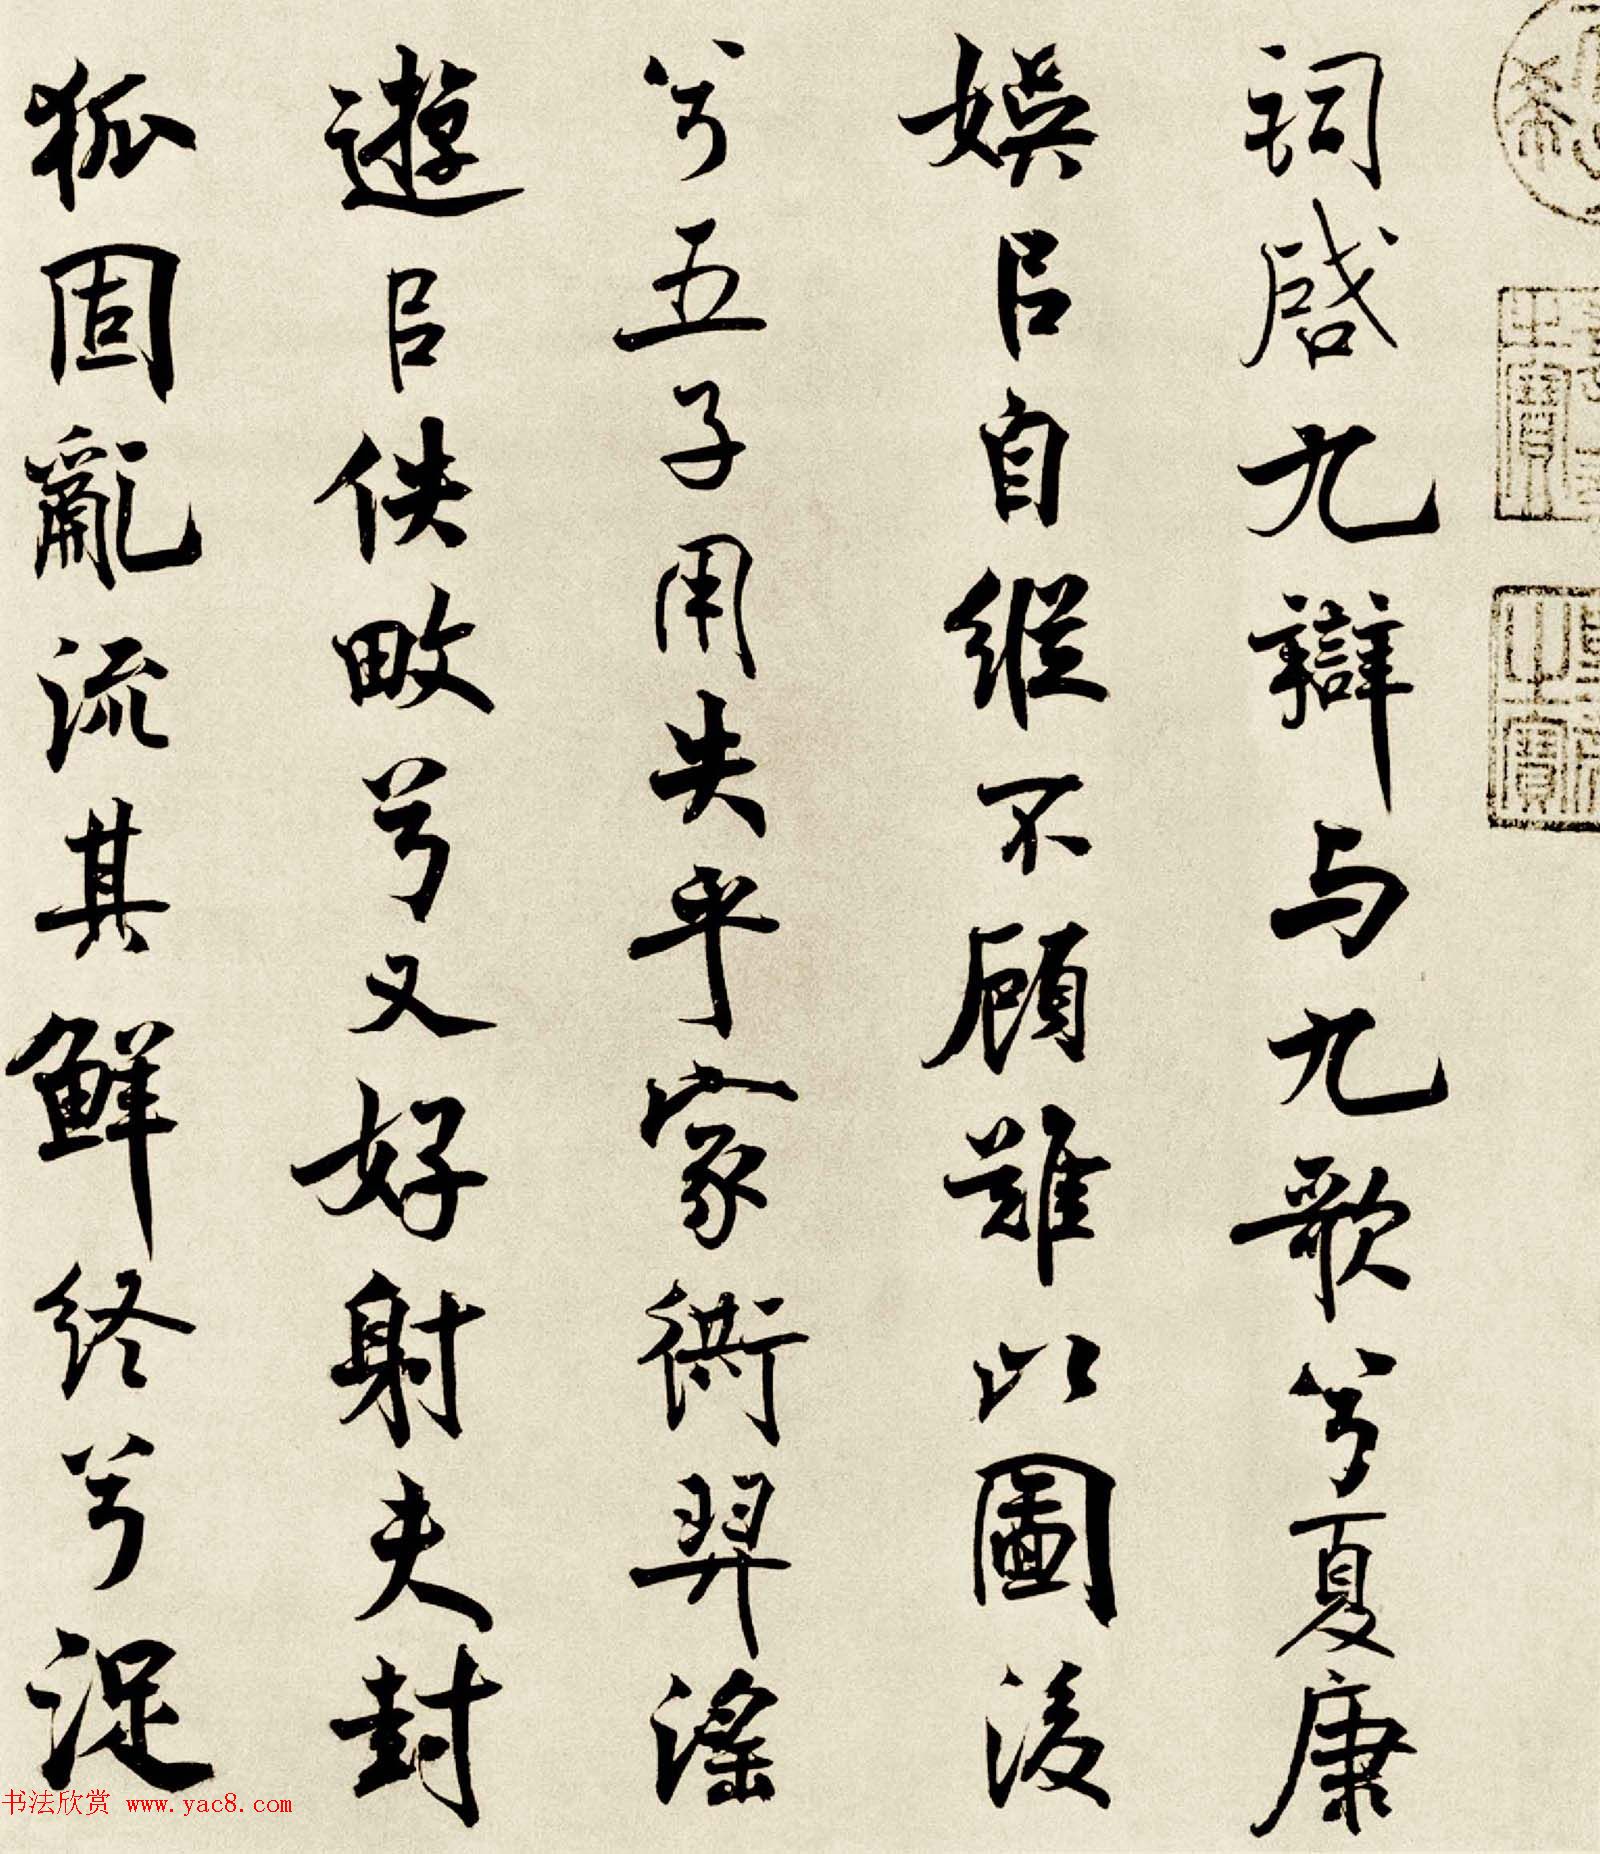 詞啓九辯与九歌兮夏康
娛㠯自縱不顧難以圖後
兮五子用失乎家衖羿滛
遊㠯佚畋兮又好射夫封
狐固亂流其鮮終兮浞
书法欣赏 www.yac8.com